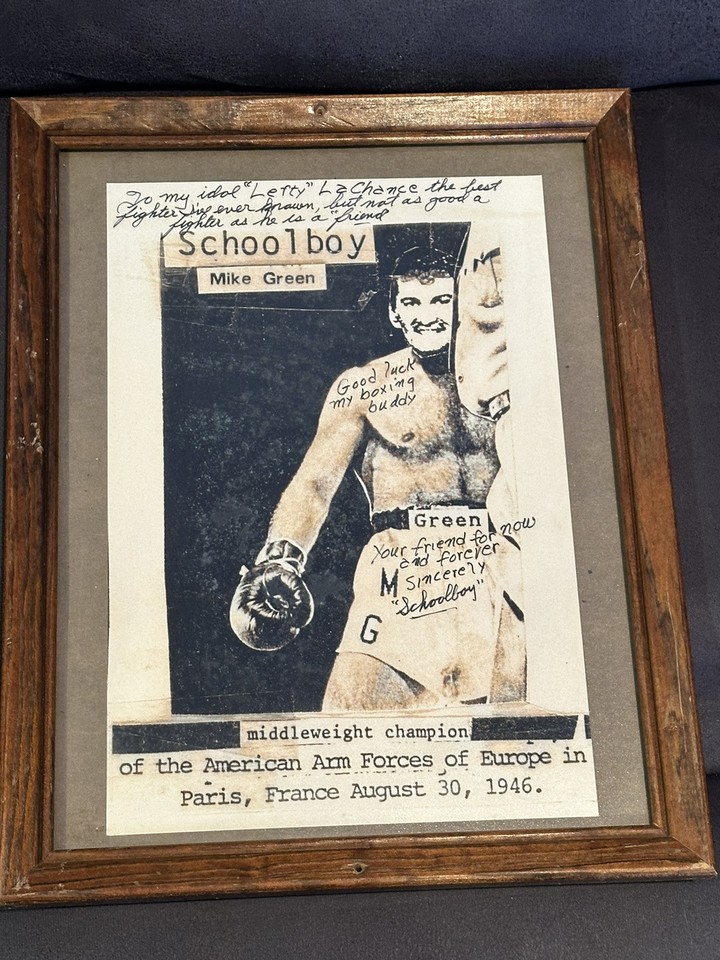 To my idol "Lefty" LaChance the best
fighter I've ever known, but not as good a
fighter as he is a "friend
Schoolboy
Mike Green
Good luck
my boxing
buddy
Green
Your friend for now
and forever
Sincerely
"Schoolboy"
M
G
middleweight champion
of the American Arm Forces of Europe in
Paris, France August 30, 1946.